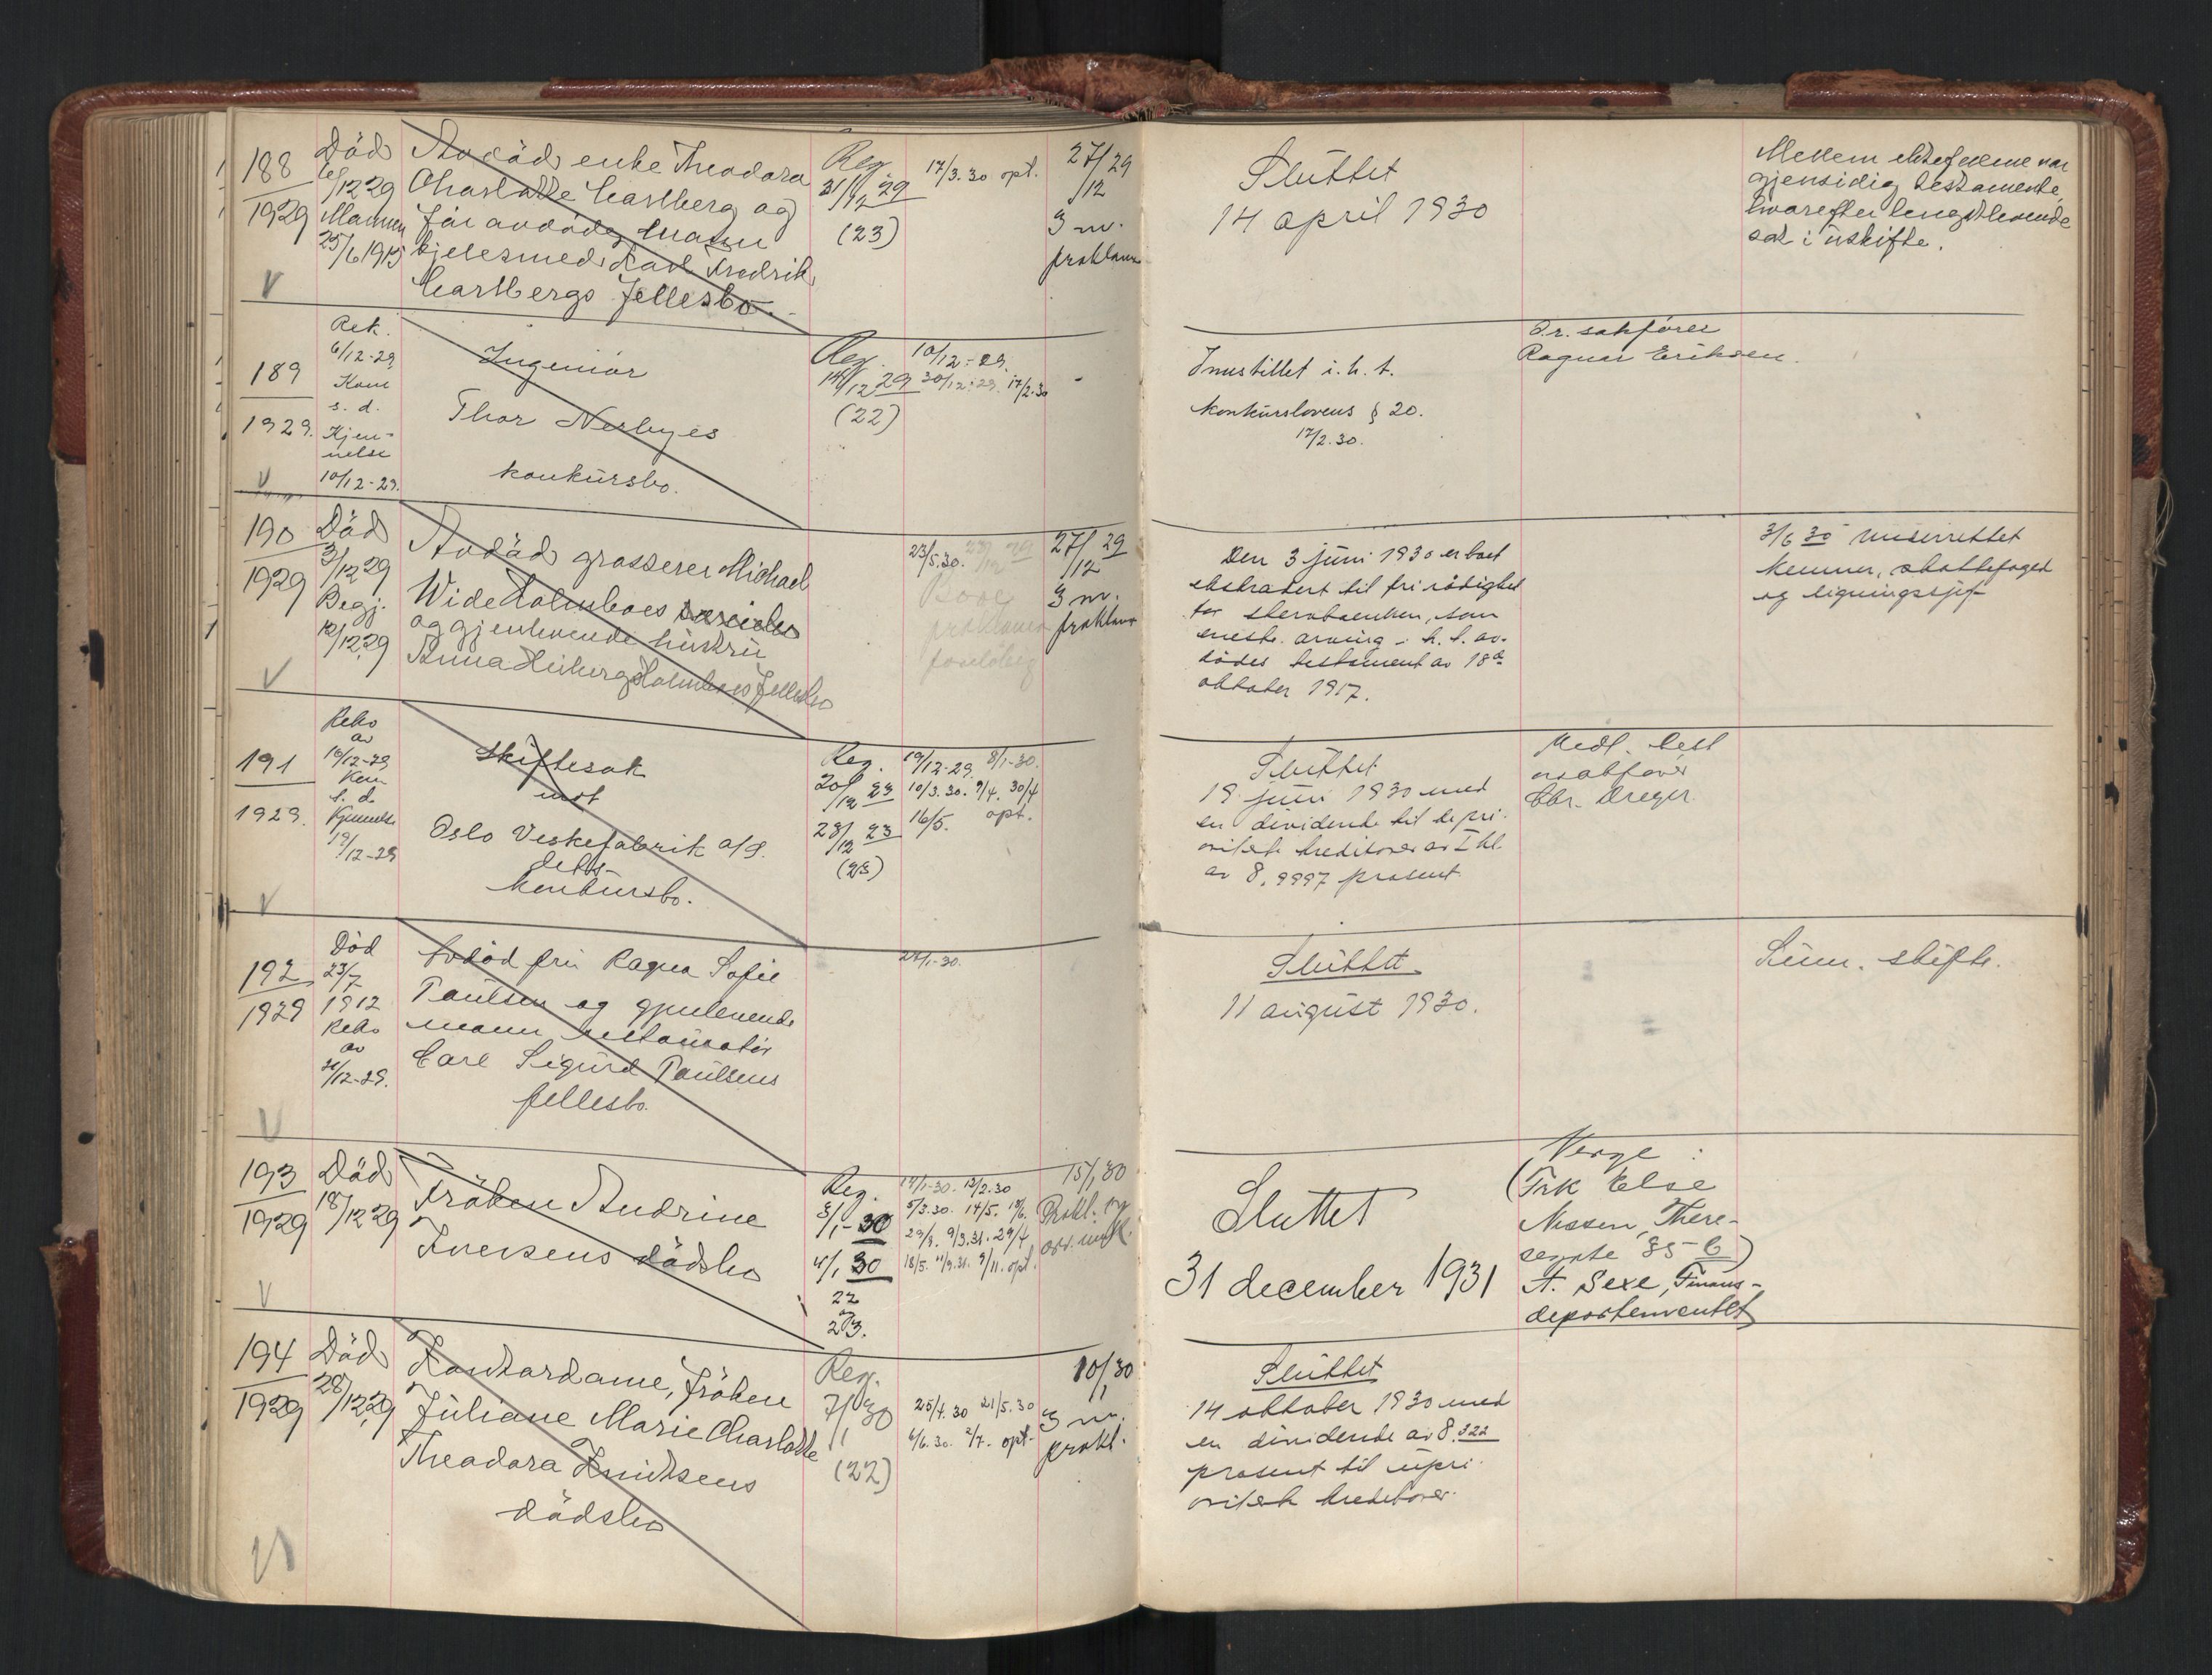 188
1929
Död
6/12 29
Mannen
25/6 1915
Avdöd enke Theodora
Charlotte Carlberg og
för avdöde mann
gjelsmed Karl Fredrik
Carlbergs fellesbo.
Reg.
31/12 29
(23)
17/3.30 opt.
27/12 29
3 m.
proklama
Sluttet
14 april 1930
Mellem ektefellene var
gjensidig testamente,
hvorefter lengstlevende
sat i uskifte.
189
1929.
Rek.
6/12-29
Kom
s. d.
Kjen-
nelse
10/12-29.
Ingeniör
Thor Nerbyes
konkursbo.
Reg.
14/12 29
(22)
10/12-29.
30/12-29. 17/2.30
Innstillet i.h.t.
konkurslovens § 20.
17/2.30.
O.r. sakförer
Ragnar Eriksen.
190
1929
Död
3/12 29
Begj.
12/12 29
Avdöd grosserer Michael
Wide Holmboes
og gjenlevende hustru
Anna Heiberg Holmboes fellesbo
23/5.30.
27/12 29
3 m.
proklama
Den 3 juni 1930 er boet
ekstradert til fri rådighet
for sterboenken, som
eneste arving i h.t. av-
dödes testament av 18de
oktober 1917.
3/6 30 underrettet
kemner, skattefoged
og ligningssjef
191
1929.
Reko
av
19/12-29
Kom
s. d.
Kjennelse
19/12-29
Skiftesak
mot
Oslo Veskefabrik a/s.
dets
konkursbo.
Reg.
20/12 29
28/12 29
(23)
19/12-29. 8/1-30.
10/3.30. 9/4. 30/4
16/5. opt.
Sluttet
19 juni 1930 med
en dividende til de pri-
oriterte kreditorer av I kl.
av 8,9997 prosent.
Midl. best
o.r.sakförer
Chr. Dreyer.
192
1929
Död
23/7
1912
Reko
av
21/12-29.
Avdöd fru Ragna Sofie
Paulsen og gjenlevende
mann, restauratör
Carl Sigurd Paulsens
fellesbo.
24/1-30.
Sluttet
11 august 1930.
Sum. skifte.
193
1929
Död
18/12 29
Fröken Andrine
Iversens dödsbo
Reg.
3/1-30
4/1 30
22
23.
14/1-30. 13/2.30
5/3.30. 14/5. 18/6.
29/9. 9/3.31. 29/4
18/5. 11/9.31. 9/11. opt.
15/1 30
Prokl. og
arv. innk.
Sluttet
31 december 1931
Verge:
(Frk Else
Nissen, There-
segate 35 b)
A. Sexe, Finans-
departementet
194
1929
Död
28/12 29
Kontordame, fröken
Juliane Marie Charlotte
Theodora Knudsens
dödsbo
Reg.
7/1 30
(22)
25/4.30 21/5.30
6/6.30. 2/7. opt.
10/1 30
3 m.
prokl.
Sluttet
14 oktober 1930 med
en dividende av 8,322
prosent til upri-
oriterte kreditorer.